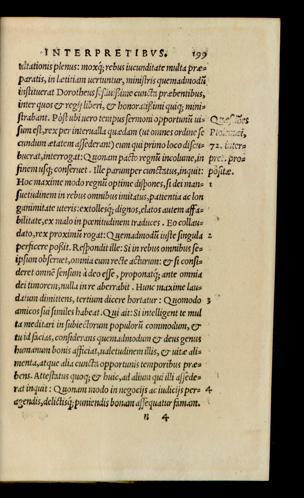 INTERPRETIBVS. 199
ultationis plenus: moxq́; rebus iucunditate multa præ-
paratis, in lætitiam uertuntur, ministris quemadmodũ
instituerat Dorotheus seduliſsime cuncta præbentibus,
inter quos & regij liberi, & honoratißimi quiq; mini-
strabant. Póst ubi uero tempus sermoni opportunũ ui-
sum est, rex per interualla quædam (ut omnes ordine se
cundum ætatem aſſederant) eum qui primo loco diſcu-
buerat, interrogat: Quonam pacto regnũ incolume, in
finem usq; conseruet. Ille parumper cunctatus, inquit:
Hoc maxime modo regnũ optime diſpones, si dei man-
suetudinem in rebus omnibus imitatus, patientia ac lon
ganimitate uteris: extolleſq; dignos, elatos autem affa-
bilitate, ex malo in pœnitudinem traduces. Eo collau-
dato, rex proximũ rogat: Quemadmodũ iuste singula
perficere poßit. Reſpondit ille: Si in rebus omnibus se-
ipsum obseruet, omnia eum recte acturum: & si consi-
deret omnẽ sensum à deo esse, proponatq́; ante omnia
dei timorem, nulla in re aberrabit. Hunc maxime lau-
datum dimittens, tertium dicere hortatur: Quomodo
amicos sui similes habeat. Qui ait: Si intelligent te mul
ta meditari in subiectorum populorũ commodum, &
tu id facias, considerans quemadmodum & deus genus
humanum bonis afficiat, ualetudinem illis, & uitæ ali-
menta, atque alia cuncta opportunis temporibus præ-
bens. Attestatus quoq; & huic, ad alium qui illi aſſede-
rat inquit: Quonam modo in negocijs ac iudicijs per-
agendis, delictisq́; puniendis bonam aſſequatur famam.
Quæstiões
Ptolomæi,
72. inter-
pret. pro-
pósitæ.
1
2
3
4
n 4